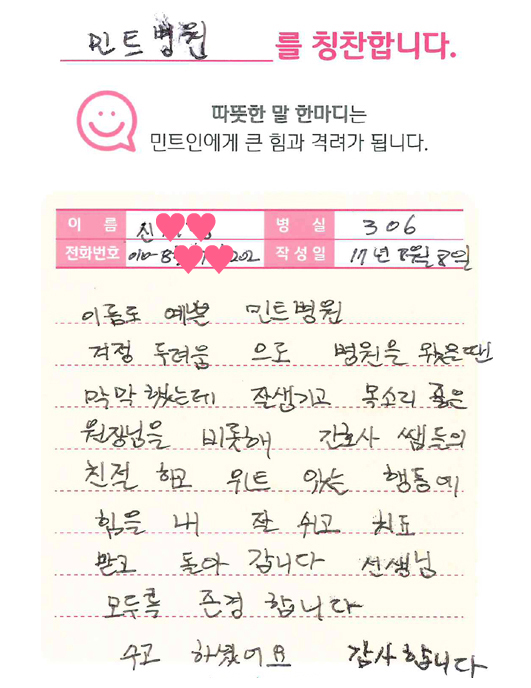 민트병원 를 칭찬합니다.
따뜻한 말 한마디는
민트인에게 큰 힘과 격려가 됩니다.
이 름 진 병 실 306
전화번호 010-8 202 작성일 17년 8월 8일
이름도 예쁜 민트병원
걱정 두려움 으로 병원을 왔을땐
막막했는데 잘생기고 목소리 좋은
원장님을 비롯해 간호사 쌤들의
친절 하고 위트 있는 행동에
힘을 내 잘 쉬고 치료
받고 돌아 갑니다 선생님
모두를 존경 합니다
수고 하셨어요 감사합니다